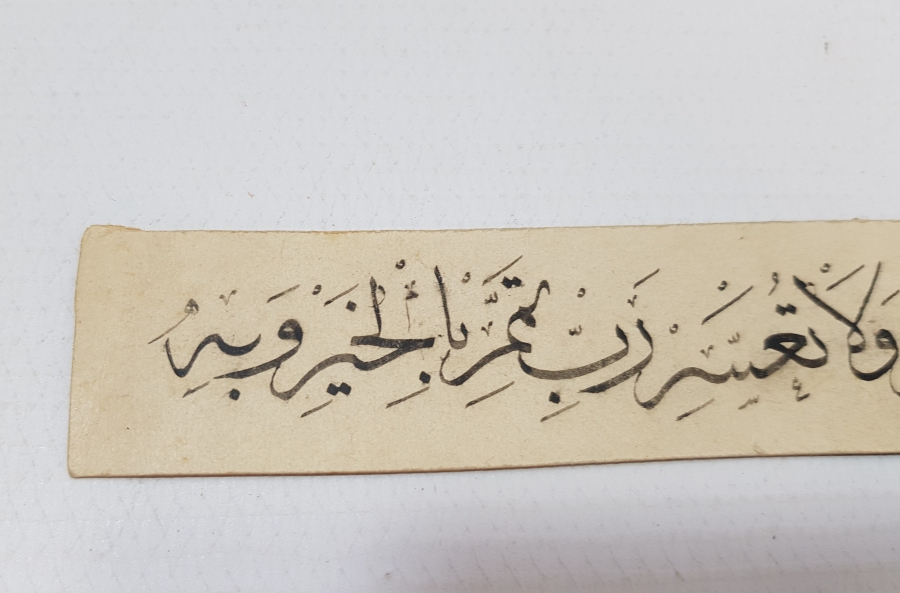 وَلَا تُعَسِّرْ رَبِّ تَمِّمْ بِالْخَيْرِ وَبِهِ